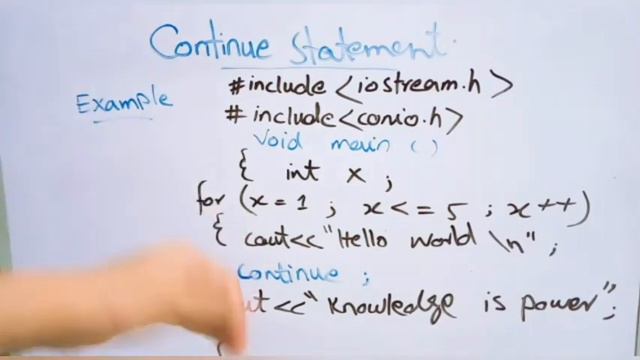 Continue Statement
Example
#include <iostream.h>
#include <conio.h>
void main ()
{ int x ;
for (x = 1 ; x <= 5 ; x++)
{ cout<<"Hello world \n" ;
continue ;
ut <<"Knowledge is power";